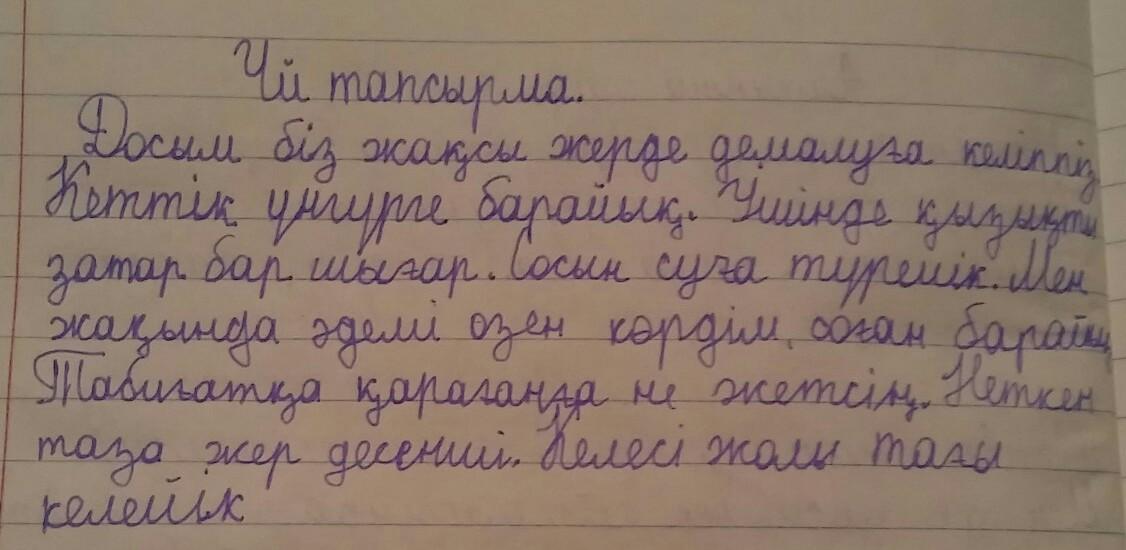 Үй тапсырма.
Досым біз жақсы жерде демалуға келіппіз
Кеттік үнгурге барайық. Ішінде қызықты
затар бар шығар. Сосын суға түрешік. Мен
жақында әдемі өзен көрдім, соған барайық
Табиғатқа қарағанға не жетсің. Неткен
таза жер десенші. Келесі жолы тағы
келейік